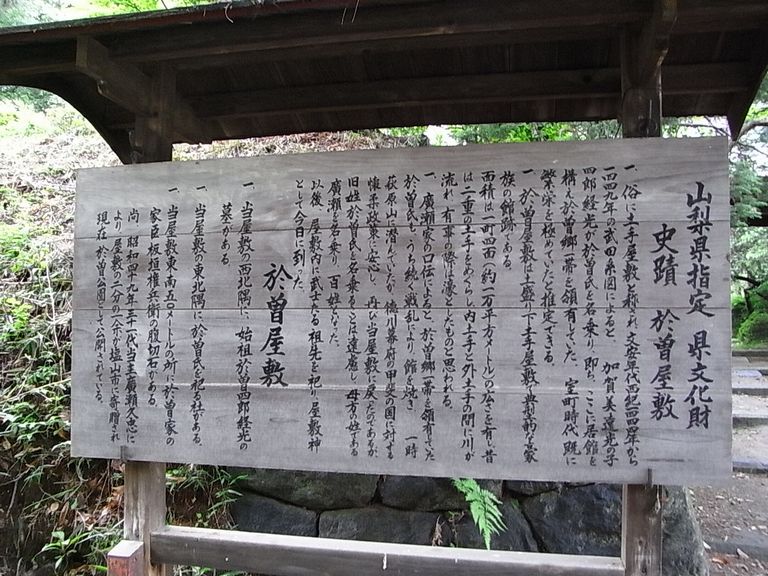 山梨県指定 県文化財
史蹟 於曽屋敷
一、俗に土手屋敷と称され、文安年代西紀一四四四年から
一四四九年の武田系図によると 加賀美遠光の子
四郎経光が於曽氏を名乗り、即ち、ここに居館を
構え於曽郷一帯を領有していた 室町時代 既に
繁栄を極めていたと推定できる。
一、於曽屋敷は土盛りで土手屋敷の典型的な豪
族の館跡である。
面積は一町四面(約一万平方メートル)の広さを有し昔
は二重の土手をめぐらし、内土手と外土手の間に川が
流れ、有事の際は濠としたものと思われる。
一、廣瀬家の口伝によると、於曽郷一帯を領有していた
於曽氏も、うち続く戦乱により 館を焼き 一時
萩原山に潜んでいたが、徳川幕府の甲斐の国に対する
懐柔政策に安心し 再び当屋敷に戻ったのであるが
旧姓於曽氏を名乗ることは遠慮し 母方の姓である
廣瀬を名乗り、百姓となった。
以後、屋敷内に武士たる祖先を祀り、屋敷神
として今日に到った。
於曽屋敷
一、当屋敷の西北隅に、始祖於曽四郎経光の
墓がある。
一、当屋敷の東北隅に於曽氏を祀る社がある。
一、当屋敷東南五〇メートルの所に於曽家の
家臣板垣権兵衛の腹切石がある
尚、昭和四十九年三十一代当主廣瀬久忠に
より、屋敷の二分の一余が塩山市に寄贈され
現在於曽公園として公開されている。